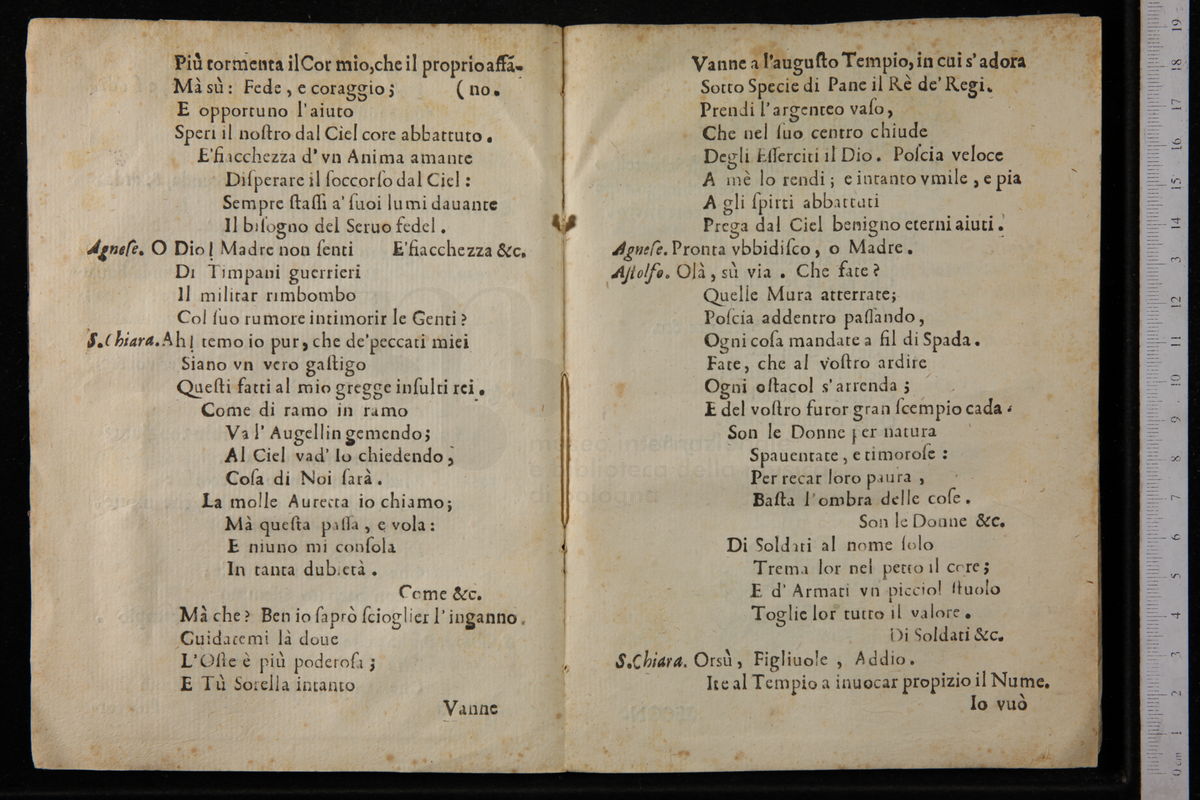 Più tormenta il Cor mio, che il proprio affã-
Mà sù: Fede, e coraggio; (no.
E opportuno l'aiuto
Speri il noſtro dal Ciel core abbattuto.
E' fiacchezza d' vn Anima amante
Diſperare il ſoccorſo dal Ciel:
Sempre ſtaſſi a' ſuoi lumi dauante
Il biſogno del Seruo fedel.
Agneſe. O Dio! Madre non ſenti E' fiacchezza &c.
Di Timpani guerrieri
Il militar rimbombo
Col ſuo rumore intimorir le Genti?
S.Chiara. Ah! temo io pur, che de' peccati miei
Siano vn vero gaſtigo
Queſti fatti al mio gregge inſulti rei.
Come di ramo in ramo
Va l' Augellin gemendo;
Al Ciel vad' Io chiedendo,
Coſa di Noi ſarà.
La molle Auretta io chiamo;
Mà queſta paſſa, e vola:
E niuno mi conſola
In tanta dubietà.
Come &c.
Mà che? Ben io ſaprò ſcioglier l' inganno.
Guidatemi là doue
L'Oſte è più poderoſa;
E Tù Sorella intanto
Vanne
Vanne a l'auguſto Tempio, in cui s' adora
Sotto Specie di Pane il Rè de' Regi.
Prendi l'argenteo vaſo,
Che nel ſuo centro chiude
Degli Eſſerciti il Dio. Poſcia veloce
A mè lo rendi; e intanto vmile, e pia
A gli ſpirti abbattuti
Prega dal Ciel benigno eterni aiuti.
Agneſe. Pronta vbbidiſco, o Madre.
Aſtolfo. Olà, sù via. Che fate?
Quelle Mura atterrate;
Poſcia addentro paſſando,
Ogni coſa mandate a fil di Spada.
Fate, che al voſtro ardire
Ogni oſtacol s'arrenda;
E del voſtro furor gran ſcempio cada.
Son le Donne per natura
Spauentate, e timoroſe:
Per recar loro paura,
Baſta l'ombra delle coſe.
Son le Donne &c.
Di Soldati al nome ſolo
Trema lor nel petto il core;
E d' Armati vn picciol ſtuolo
Toglie lor tutto il valore.
Di Soldati &c.
S.Chiara. Orsù, Figliuole, Addio.
Ite al Tempio a inuocar propizio il Nume.
Io vuò